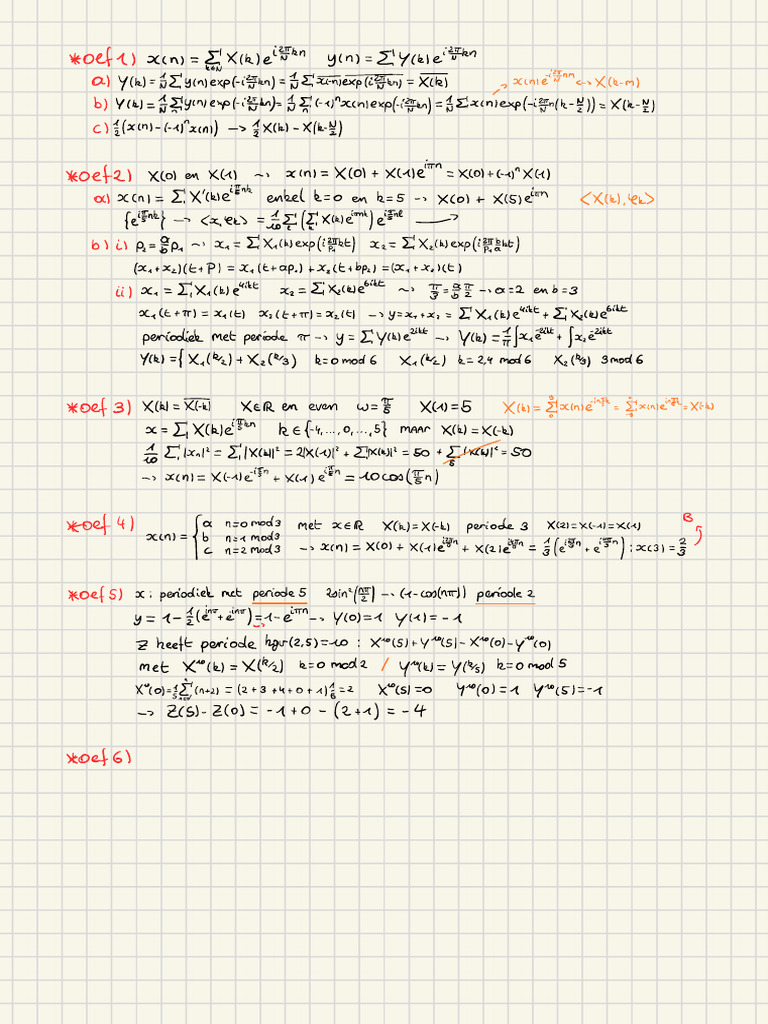 *oef 1) x(n) = Σ_{k∈N} X(k) e^{i 2π/N kn}   y(n) = Σ Y(k) e^{i 2π/N kn}
a) Y(k) = 1/N Σ y(n) exp(-i 2π/N kn) = 1/N Σ \overline{x(-n)} \overline{exp(i 2π/N kn)} = \overline{X(k)}   x(n) e^{-i 2π/N nm} ↔ X(k-m)
b) Y(k) = 1/N Σ_n y(n) exp(-i 2π/N kn) = 1/N Σ_n (-1)^n x(n) exp(-i 2π/N kn) = 1/N Σ x(n) exp(-i 2π/N n(k-N/2)) = X(k-N/2)
c) 1/2 (x(n) - (-1)^n x(n)) → 1/2 X(k) - X(k-N/2)
*oef 2) X(0) en X(1) ⤳ x(n) = X(0) + X(1) e^{iπn} = X(0) + (-1)^n X(1)
a) x(n) = Σ X'(k) e^{i π/5 nk} enkel k=0 en k=5 → X(0) + X(5) e^{iπn}   <X(k), φ_k>
{e^{i π/5 nk}} → <x, φ_k> = 1/10 Σ (Σ_k X(k) e^{iπnk}) e^{i π/5 nl} →
b) i) p_2 = a/b p_1 ⤳ x_1 = Σ X_1(k) exp(i 2π/p_1 kt)   x_2 = Σ X_2(k) exp(i 2π/p_1 b/a kt)
(x_1 + x_2)(t + P) = x_1(t + ap_1) + x_2(t + bp_2) = (x_1 + x_2)(t)
ii) x_1 = Σ X_1(k) e^{4ikt}   x_2 = Σ X_2(k) e^{6ikt} ⤳ π/3 = a/b π/2 → a=2 en b=3
x_1(t+π) = x_1(t)   x_2(t+π) = x_2(t) → y = x_1 + x_2 = Σ X_1(k) e^{4ikt} + Σ X_2(k) e^{6ikt}
periodiek met periode π → y = Σ Y(k) e^{2ikt} → Y(k) = 1/π ∫ x_1 e^{-2ikt} + ∫ x_2 e^{-2ikt}
Y(k) = { X_1(k/2) + X_2(k/3)   k=0 mod 6   X_1(k/2)   k=2,4 mod 6   X_2(k/3)   3 mod 6
*oef 3) X(k) = \overline{X(-k)}   X∈ℝ en even   ω = π/5   X(1) = 5   X(k) = Σ x(n) e^{-in π/5 k} = Σ x(n) e^{in π/5 k} = X(-k)
x = Σ X(k) e^{i π/5 kn}   k ∈ {-4, ..., 0, ..., 5} maar X(k) = X(-k)
1/10 Σ |x_n|² = Σ |X(k)|² = 2|X(1)|² + Σ |X(k)|² = 50 + Σ |X(k)|² = 50
→ x(n) = X(-1) e^{-i π/5 n} + X(1) e^{i π/5 n} = 10 cos(π/5 n)
*oef 4) x(n) = { a   n=0 mod 3   met x∈ℝ   X(k) = X(-k)   periode 3   X(2) = X(-1) = X(1)   B
b   n=1 mod 3
c   n=2 mod 3   → x(n) = X(0) + X(1) e^{i 2π/3 n} + X(2) e^{i 4π/3 n} = 1/3 (e^{i 2π/3 n} + e^{i 4π/3 n}) ; x(3) = 2/3
*oef 5) x : periodiek met periode 5   2 sin²(nπ/2) → (1 - cos(nπ)) periode 2
y = 1 - 1/2 (e^{inπ} + e^{inπ}) = 1 - e^{iπn} → Y(0) = 1   Y(1) = -1
Z heeft periode kgv(2,5) = 10 : X^{10}(5) + Y^{10}(5) - X^{10}(0) - Y^{10}(0)
met X^{10}(k) = X(k/2)   k=0 mod 2 / Y^{10}(k) = Y(k/5)   k=0 mod 5
X^{10}(0) = 1/5 Σ (n+2) = (2+3+4+0+1) 1/5 = 2   X^{10}(5) = 0   Y^{10}(0) = 1   Y^{10}(5) = -1
→ Z(5) - Z(0) = -1 + 0 - (2+1) = -4
*oef 6)